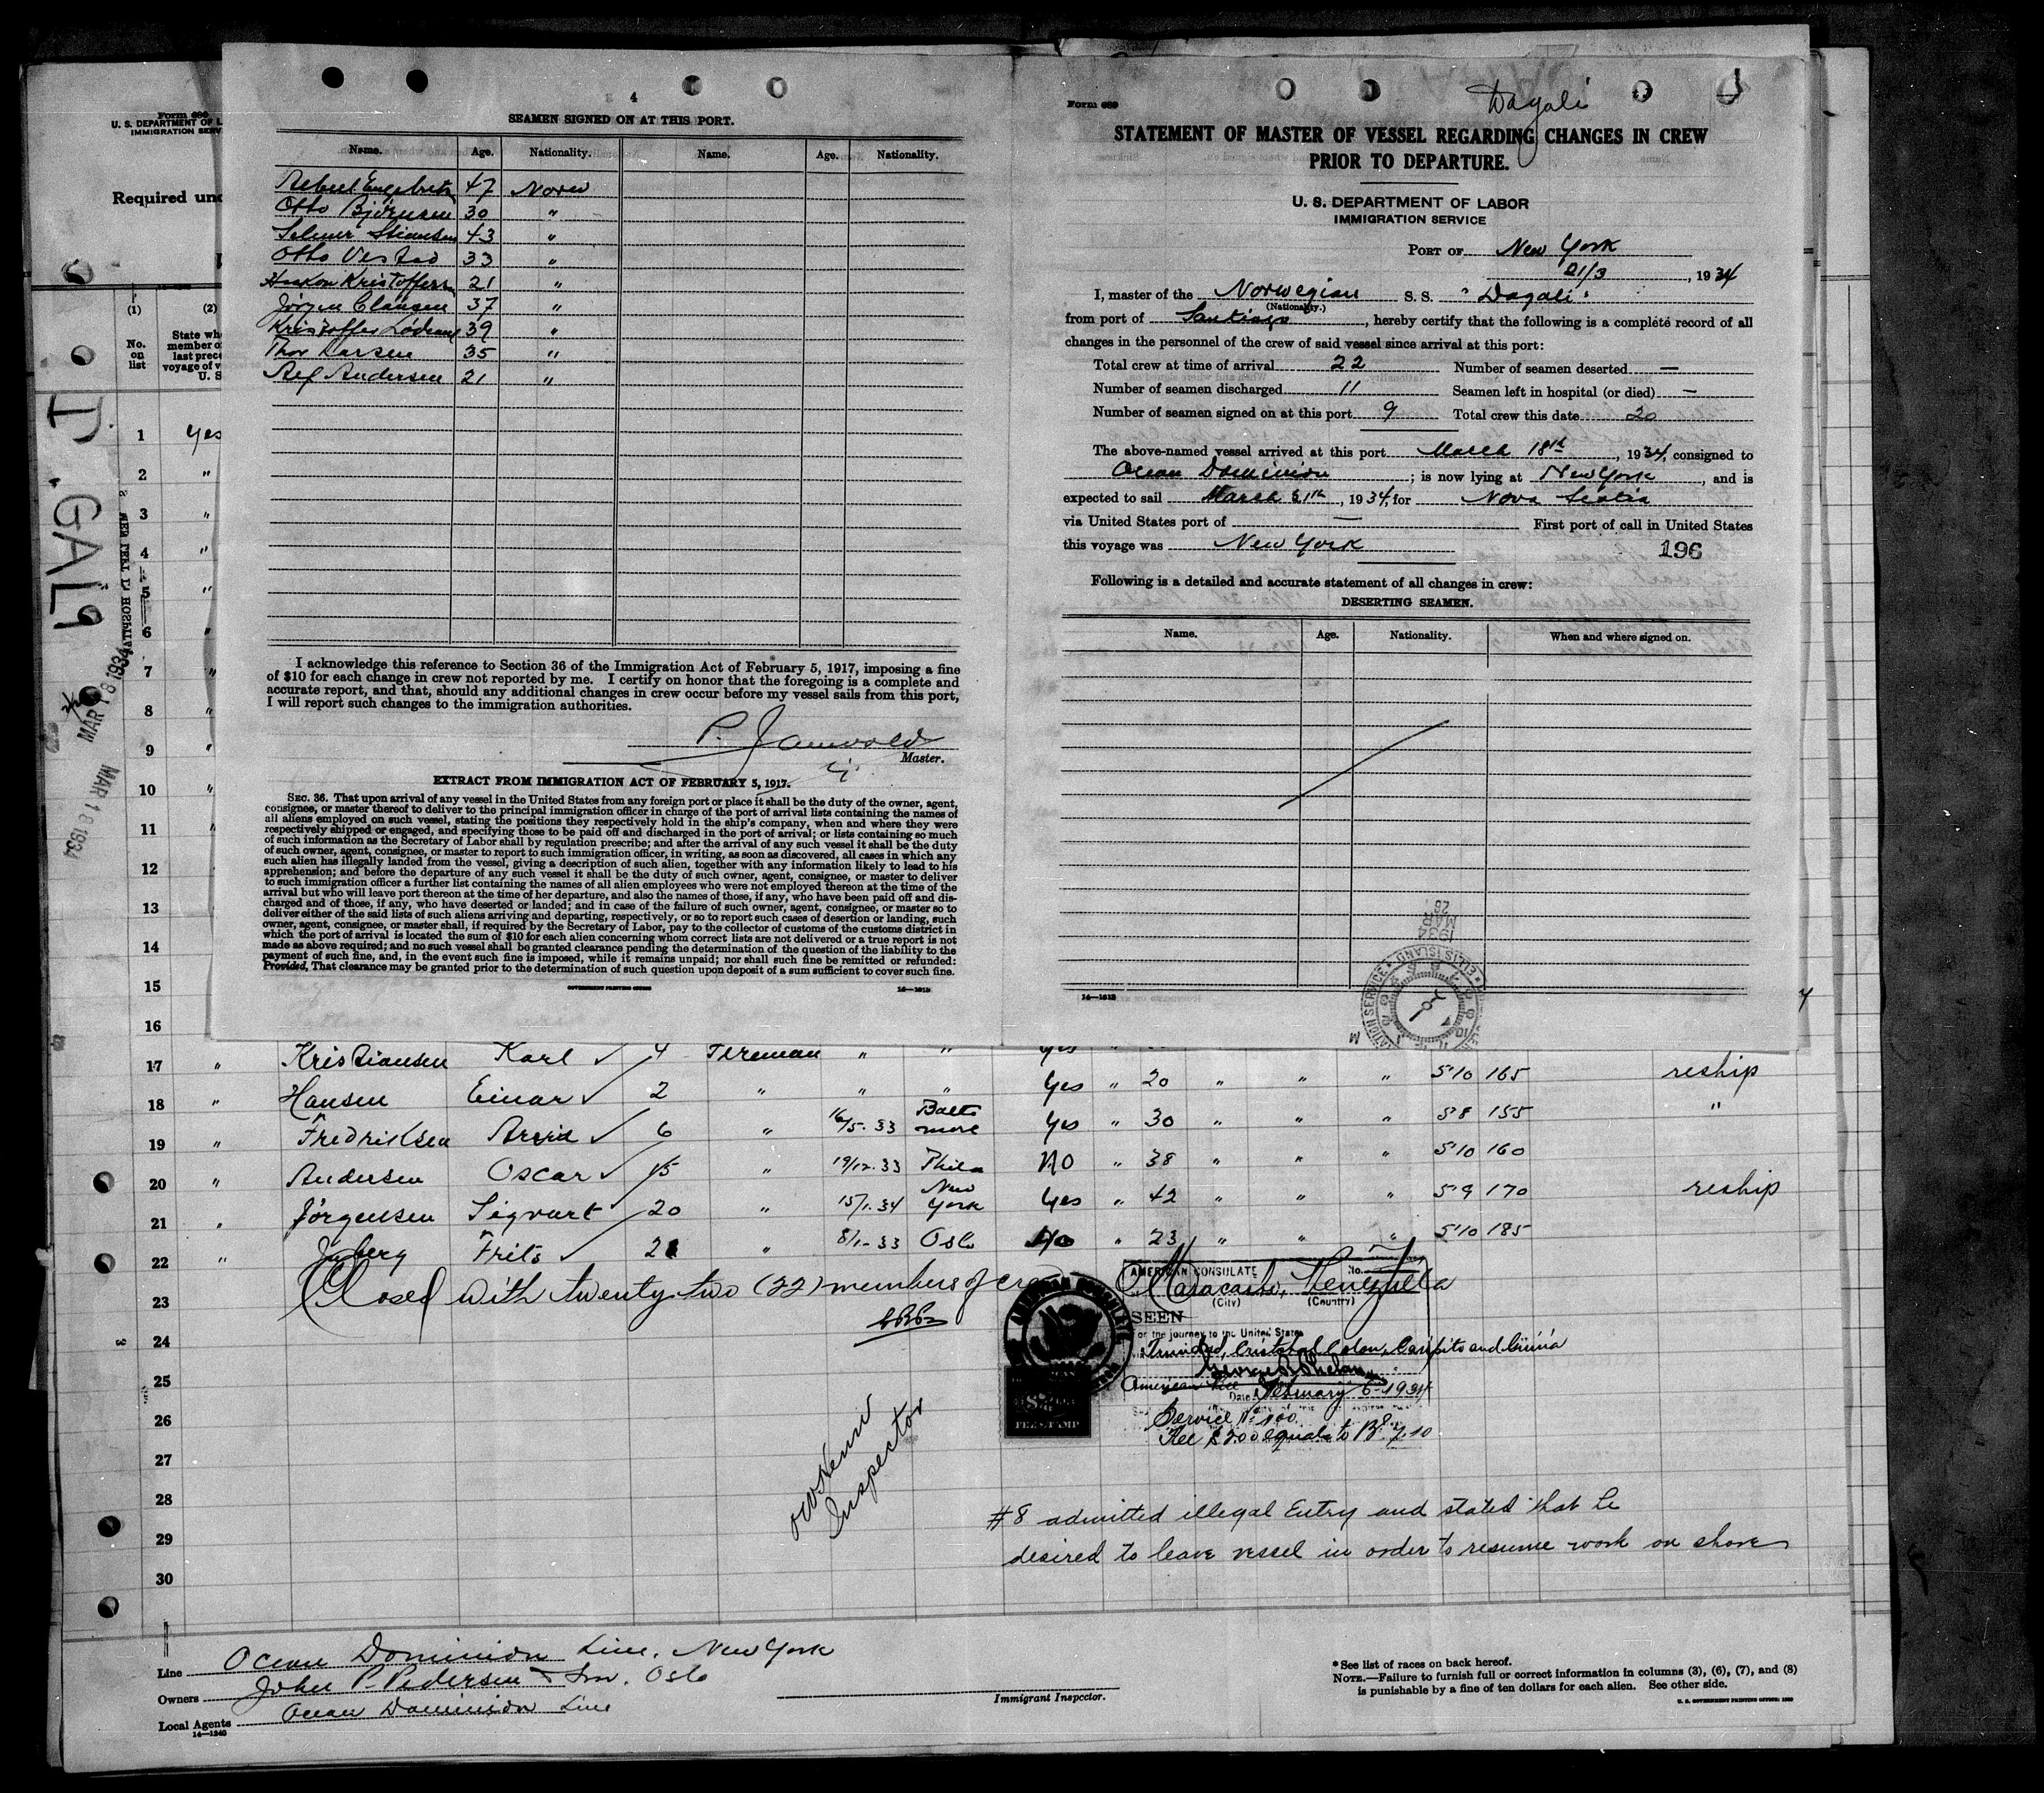 4
SEAMEN SIGNED ON AT THIS PORT.
Name. Age. Nationality. Name. Age. Nationality.
47 Norw
Otto Bjørnsen 30 "
43 "
Otto 33 "
Haakon Kristoffersen 21 "
Jørgen Clausen 37 "
Kristoffer 39 "
Thor Larsen 35 "
Alf Andersen 21 "
I acknowledge this reference to Section 36 of the Immigration Act of February 5, 1917, imposing a fine
of $10 for each change in crew not reported by me. I certify on honor that the foregoing is a complete and
accurate report, and that, should any additional changes in crew occur before my vessel sails from this port,
I will report such changes to the immigration authorities.
P.
Master.
EXTRACT FROM IMMIGRATION ACT OF FEBRUARY 5, 1917.
SEC. 36. That upon arrival of any vessel in the United States from any foreign port or place it shall be the duty of the owner, agent,
consignee, or master thereof to deliver to the principal immigration officer in charge of the port of arrival lists containing the names of
all aliens employed on such vessel, stating the positions they respectively hold in the ship's company, when and where they were
respectively shipped or engaged, and specifying those to be paid off and discharged in the port of arrival; or lists containing so much
of such information as the Secretary of Labor shall by regulation prescribe; and after the arrival of any such vessel it shall be the duty
of such owner, agent, consignee, or master to report to such immigration officer, in writing, as soon as discovered, all cases in which any
such alien has illegally landed from the vessel, giving a description of such alien, together with any information likely to lead to his
apprehension; and before the departure of any such vessel it shall be the duty of such owner, agent, consignee, or master to deliver
to such immigration officer a further list containing the names of all alien employees who were not employed thereon at the time of the
arrival but who will leave port thereon at the time of her departure, and also the names of those, if any, who have been paid off and dis-
charged and of those, if any, who have deserted or landed; and in case of the failure of such owner, agent, consignee, or master so to
deliver either of the said lists of such aliens arriving and departing, respectively, or so to report such cases of desertion or landing, such
owner, agent, consignee, or master shall, if required by the Secretary of Labor, pay to the collector of customs of the customs district in
which the port of arrival is located the sum of $10 for each alien concerning whom correct lists are not delivered or a true report is not
made as above required; and no such vessel shall be granted clearance pending the determination of the question of the liability to the
payment of such fine, and, in the event such fine is imposed, while it remains unpaid; nor shall such fine be remitted or refunded:
Provided, That clearance may be granted prior to the determination of such question upon deposit of a sum sufficient to cover such fine.
GOVERNMENT PRINTING OFFICE
Form 689
Dagali
STATEMENT OF MASTER OF VESSEL REGARDING CHANGES IN CREW
PRIOR TO DEPARTURE.
U. S. DEPARTMENT OF LABOR
IMMIGRATION SERVICE
PORT OF New York
21/3, 1934
I, master of the Norwegian S. S. "Dagali"
(Nationality.)
from port of Santiago, hereby certify that the following is a complete record of all
changes in the personnel of the crew of said vessel since arrival at this port:
Total crew at time of arrival 22 Number of seamen deserted —
Number of seamen discharged 11 Seamen left in hospital (or died) —
Number of seamen signed on at this port 9 Total crew this date 20
The above-named vessel arrived at this port March 18th, 1934, consigned to
Ocean Dominion; is now lying at New York, and is
expected to sail March 21th, 1934, for Nova Scotia
via United States port of — First port of call in United States
this voyage was New York
196
Following is a detailed and accurate statement of all changes in crew:
DESERTING SEAMEN.
Name. Age. Nationality. When and where signed on.
1934
MAR
26
ELLIS ISLAND
U. S. DEPARTMENT OF L
IMMIGRATION SERV
Required und
(1) (2)
No. on list
State whe
member o
last prece
voyage of v
U. S
MAR 18 1934
MAR 18 1934
1 Yes
2 "
3 "
4 "
5 "
6 "
7 "
8 "
9 "
10 "
11 "
12 "
13 "
14
15
16
17 " Kristiansen Karl 4 Fireman " " Yes
18 " Hansen Einar 2 " " " Yes " 20 " " " 5'10 165 reship
19 " Fredriksen Arvid 6 " 16/5-33 Baltimore Yes " 30 " " " 5'8 155 "
20 " Andersen Oscar 15 " 19/12-33 Phila No " 38 " " " 5'10 160
21 " Jørgensen Sigvart 20 " 15/1.34 New York Yes " 42 " " " 5'9 170 reship
22 " Frits " Oslo No " 23 " " " 5'10 185
23 Closed with twenty two (22) members of crew
24
25
26
27
28
29
30
AMERICAN CONSULATE No.
Maracaibo, Venezuela
(City) (Country)
SEEN
for the journey to the United States
Trinidad, Cristobal Colon, Caripito and
American Vice
Date February 6-1934
Service No 100
Fee $2.00 equal to Bs 7.10
Inspector
#8 admitted illegal Entry and stated that he
desired to leave vessel in order to resume work on shore
Line Ocean Dominion Line, New York
Owners John P. Pedersen & Son, Oslo
Local Agents Ocean Dominion Line
14—1240
Immigrant Inspector.
* See list of races on back hereof.
NOTE.—Failure to furnish full or correct information in columns (3), (6), (7), and (8)
is punishable by a fine of ten dollars for each alien. See other side.